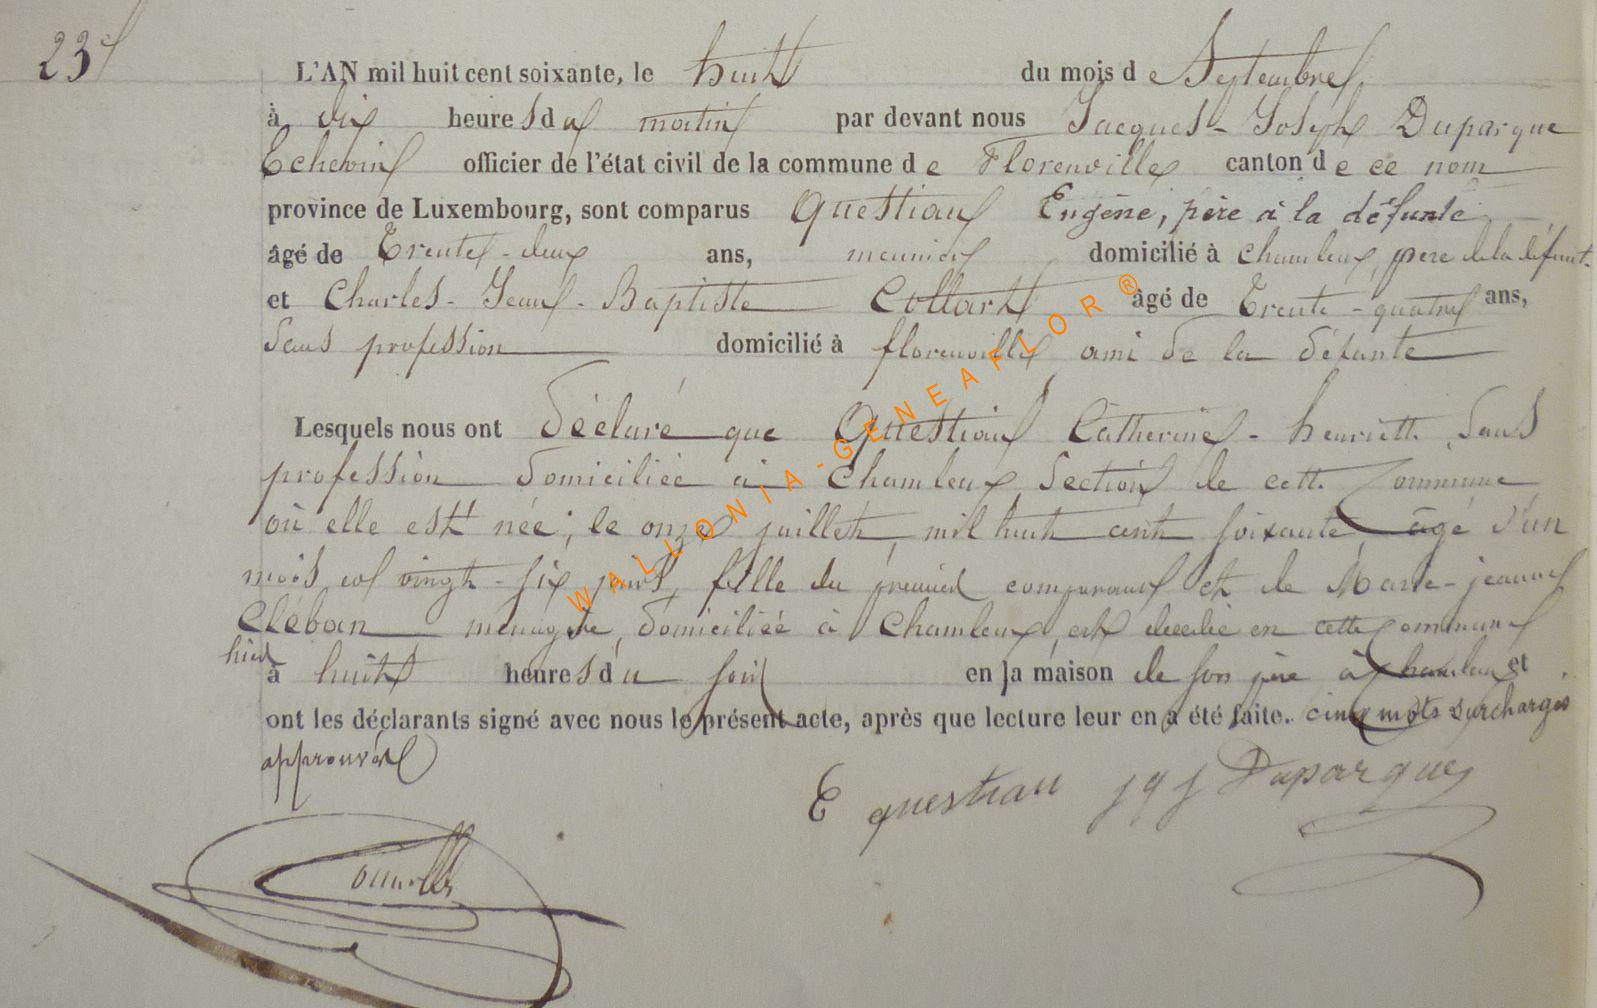 23e
L'AN mil huit cent soixante, le huit du mois de Septembre,
à dix heures du matin par devant nous Jacques-Joseph Duparque
Echevin officier de l'état civil de la commune de Florenville canton de ce nom
province de Luxembourg, sont comparus Questiaux Eugène, père à la défunte
âgé de Trente-deux ans, meunier domicilié à Chameleux, père de la défunt.
et Charles-Jean-Baptiste Collart âgé de Trente-quatre ans,
sans profession domicilié à florenville ami de la défunte
Lesquels nous ont déclaré que Questiaux Catherine-henriette, sans
profession domiciliée à Chameleux, section de cette commune
où elle est née, le onze juillet, mil huit cent soixante, âgé d'un
mois et vingt-six jours, fille du premier comparant et de Marie-jeanne
Cléban ménagère, domiciliée à Chameleux, est decedée en cette commune
hier
à huit heures du soir en la maison de son père à Chameleux et
ont les déclarants signé avec nous le présent acte, après que lecture leur en a été faite. cinq mots surchargés
approuvés
E questiau J q J Duparque
WALLONIA-GENEAFLOR®